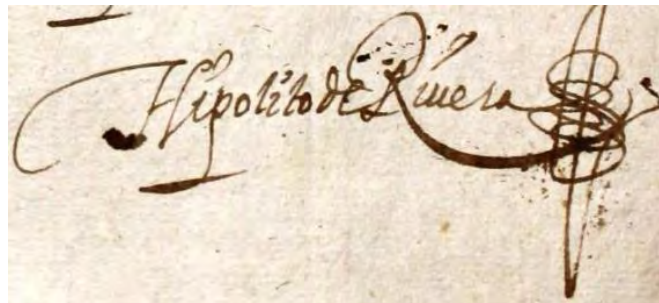 Hipolito de Riuera